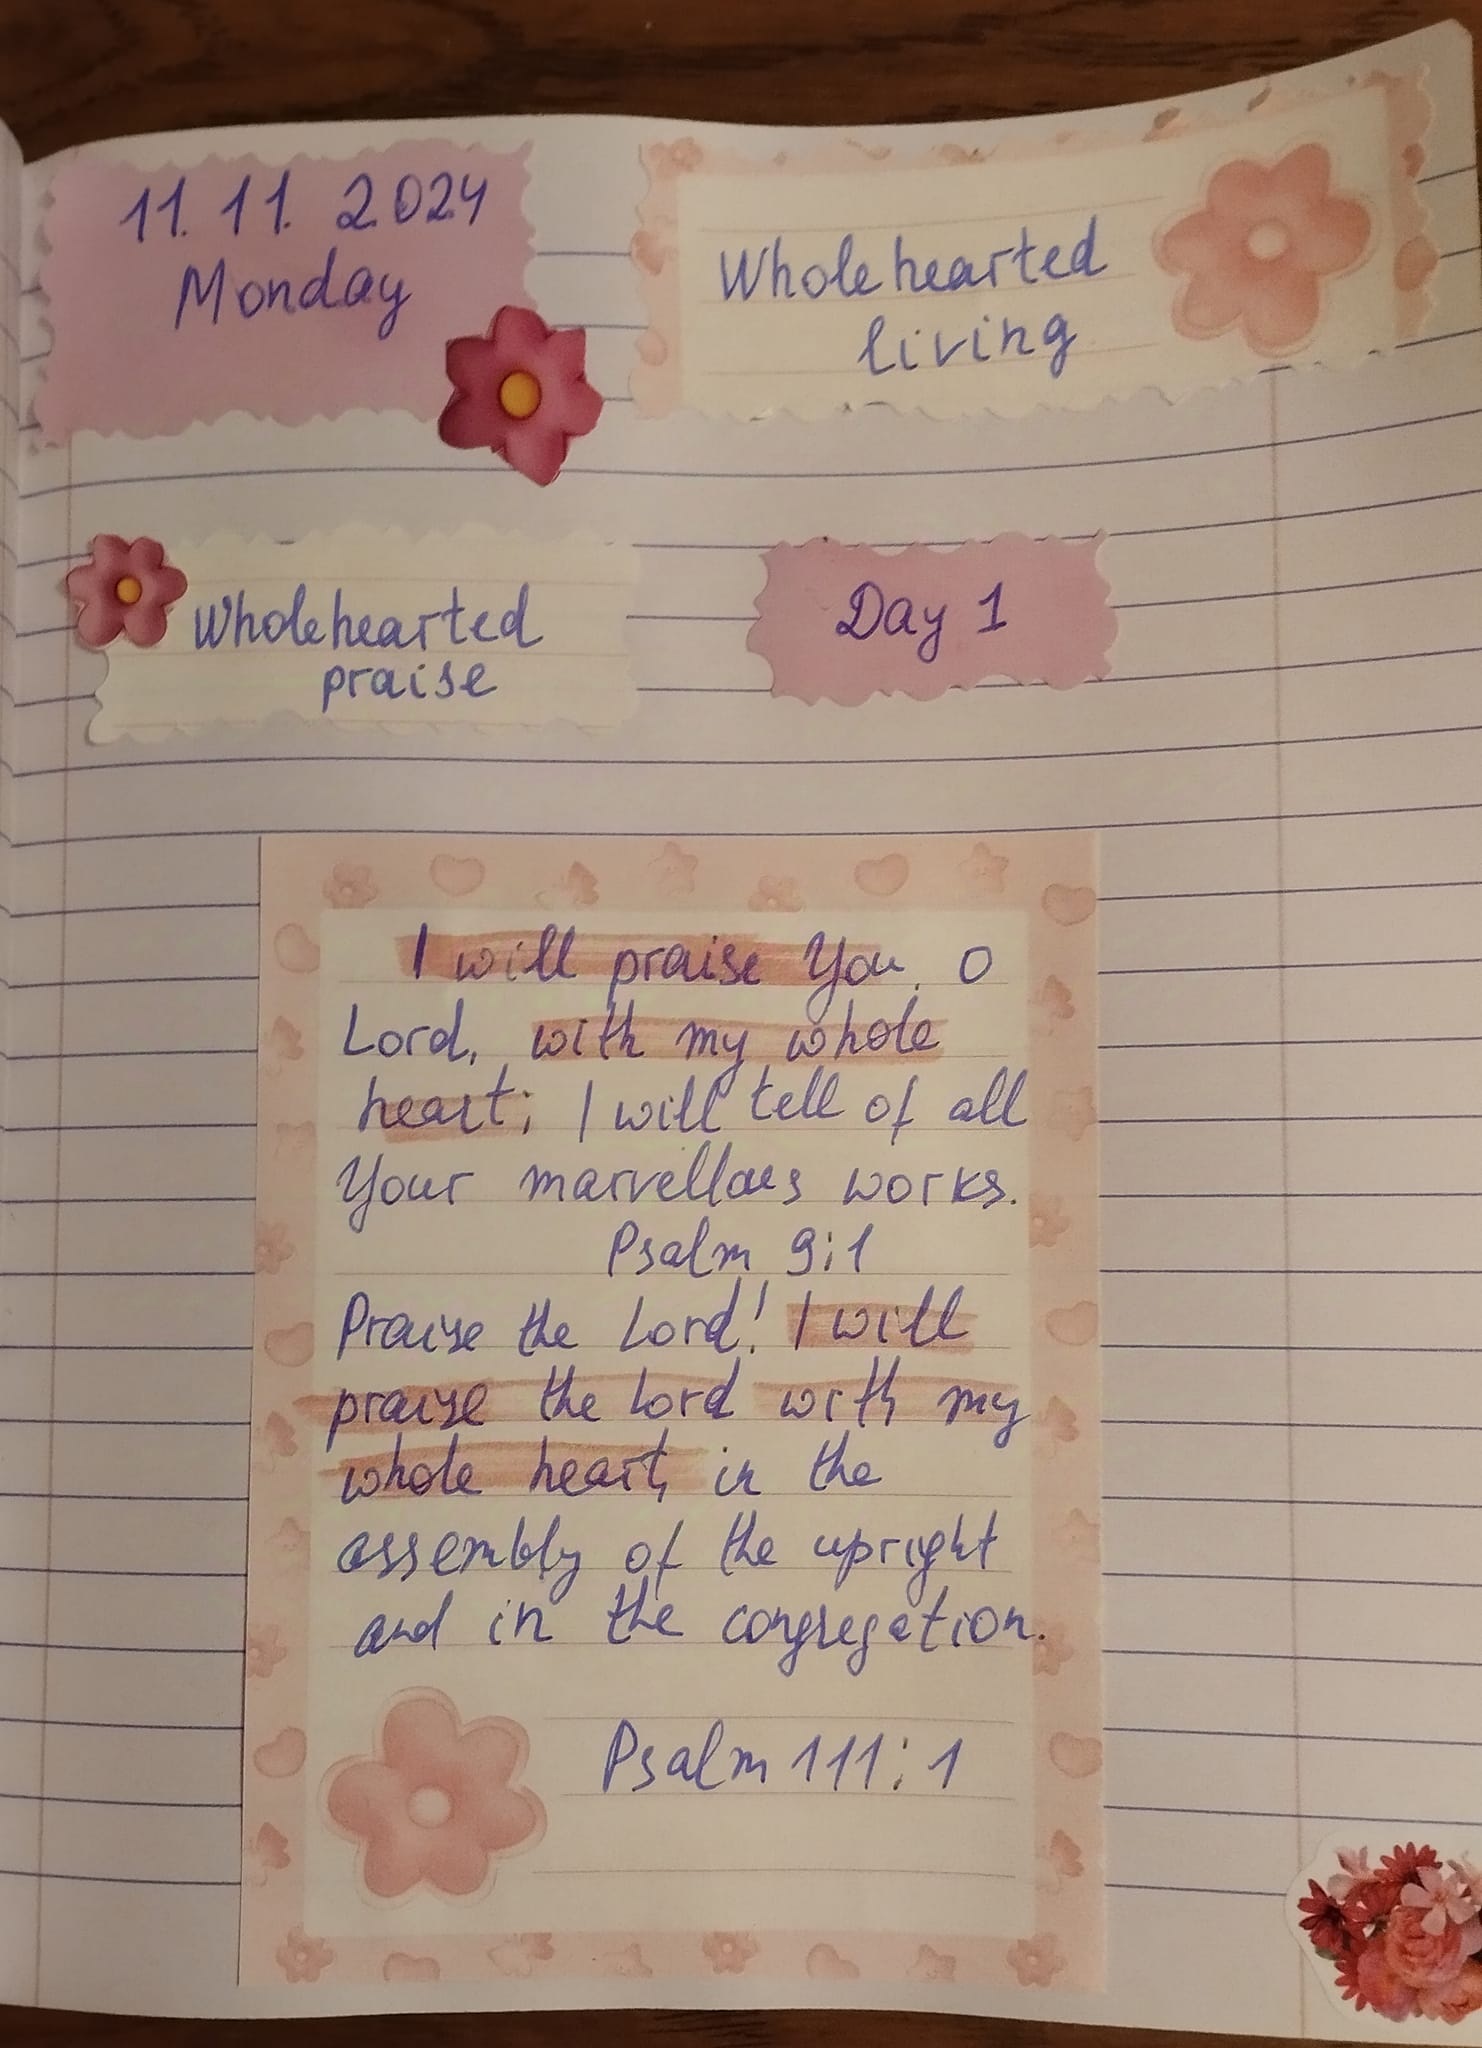 11.11.2024
Monday
Wholehearted
living
Wholehearted
praise
Day 1
I will praise You, O
Lord, with my whole
heart; I will tell of all
Your marvellous works.
Psalm 9:1
Praise the Lord! I will
praise the Lord with my
whole heart, in the
assembly of the upright
and in the congregation.
Psalm 111:1